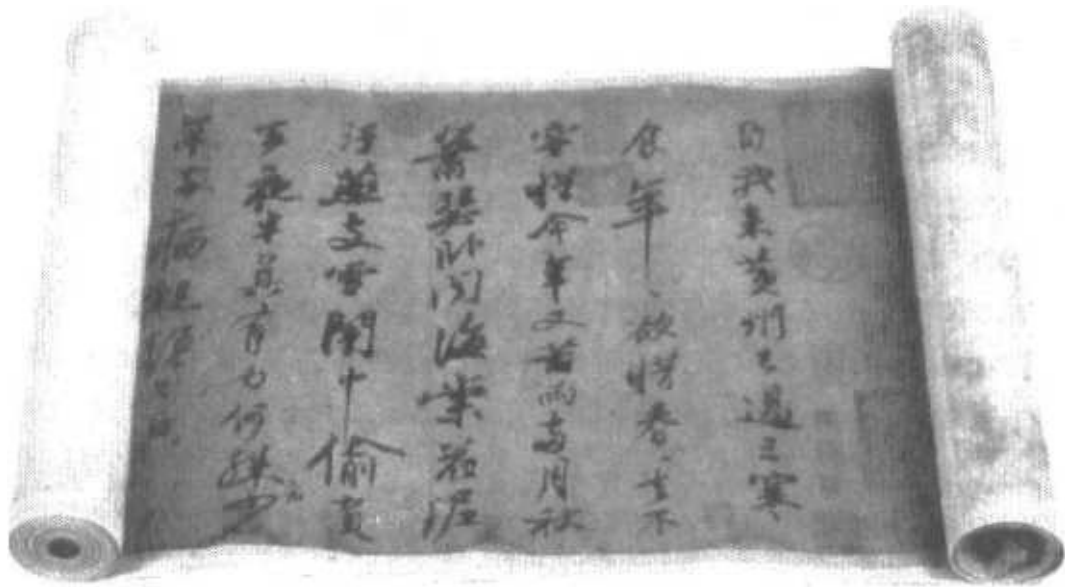 自我來黃州已過三寒
食年〻欲惜春〻去不
容惜今年又苦雨兩月秋
蕭瑟臥聞海棠花泥
汙燕支雪闇中偷負
去夜半真有力何殊少
年子病起頭已白